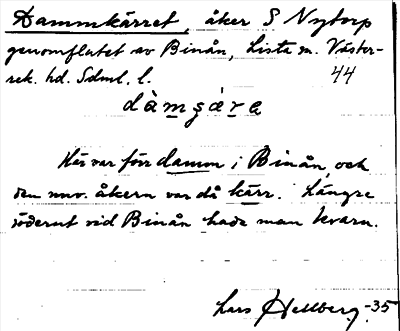 Dammkärret, åker S Nytorp
genomflutet av Binån, Lista sn. Väster-
rek. hd. Sdml. l. 44
dàmṣára
Här var förr damm i Binån, och
den nuv. åkern var då kärr. Längre
söderut vid Binån hade man kvarn.
Lars Hellberg. -35